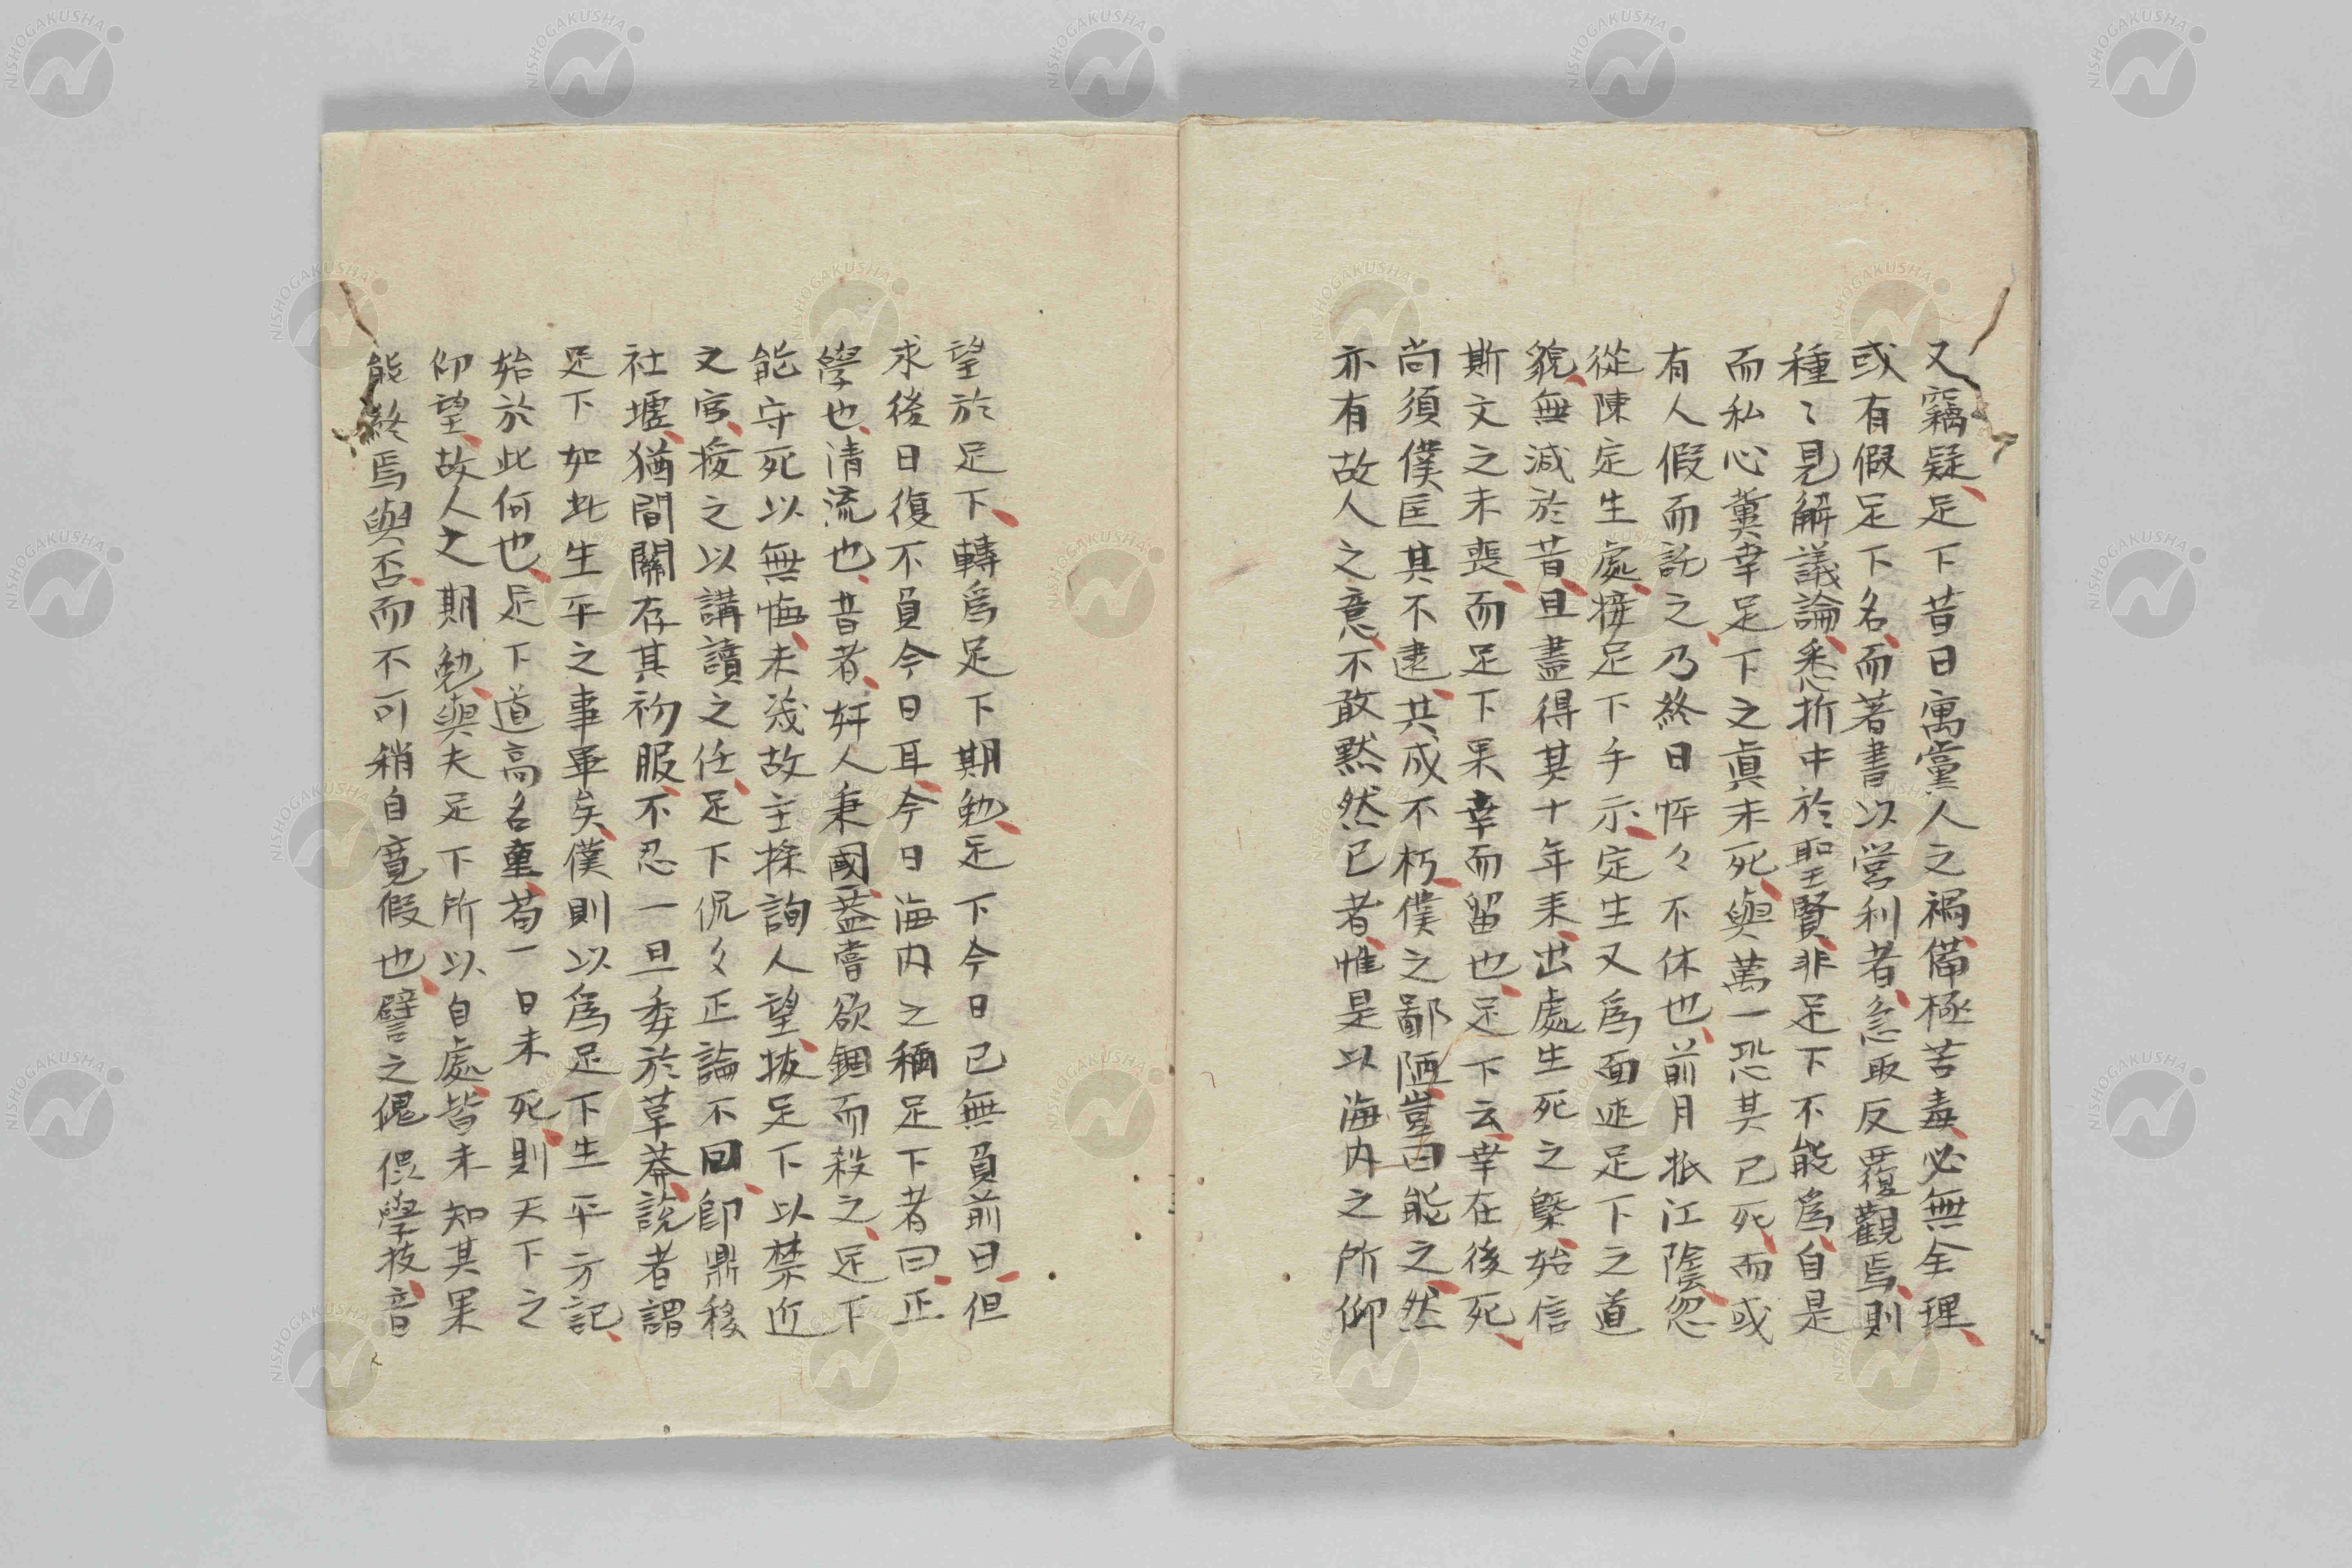 又竊疑足下昔日寓黨人之禍備極苦毒必無全理
或有假足下名而著書以営利者急取反覆觀焉則
種〻見解議論悉折中於聖賢非足下不能爲自是
而私心冀幸足下之眞未死與萬一恐其已死而或
有人假而託之乃終日怦々不休也前月抵江陰忽
從陳定生處接足下手示定生又爲面述足下之道
貌無減於昔且盡得其十年来出處生死之槩始信
斯文之未喪而足下果幸而留也足下云幸在後死
尚須僕匡其不逮共成不朽僕之鄙陋豈曰能之然
亦有故人之意不敢黙然已者惟是以海内之所仰
望於足下轉爲足下期勉足下今日已無負前日但
求後日復不負今日耳今日海内之稱足下者曰正
學也清流也昔者奸人秉國蓋嘗欲錮而殺之足下
能守死以無悔未㡬故主採詢人望拔足下以禁近
之官授之以講讀之任足下侃々正論不回卽鼎移
社墟猶間關存其初服不忍一旦委於草莽說者謂
足下如此生平之事畢矣僕則以爲足下生平方記
始於此何也足下道高名重苟一日未死則天下之
仰望故人之期勉與夫足下所以自處皆未知其果
能終焉與否而不可稍自寛假也譬之傀儡學技音